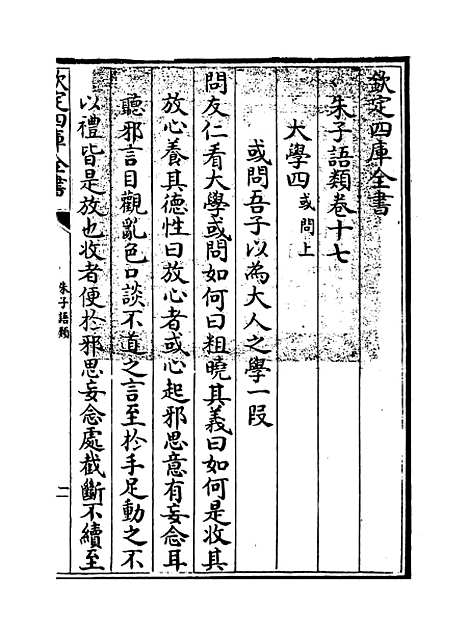 欽定四庫全書
朱子語類卷十七
大學四或問上
或問吾子以為大人之學一段
問友仁看大學或問如何曰粗曉其義曰如何是收其
放心養其德性曰放心者或心起邪思意有妄念耳
聽邪言目觀亂色口談不道之言至於手足動之不
以禮皆是放也收者便於邪思妄念處截斷不續至
欽定四庫全書
朱子語類
二